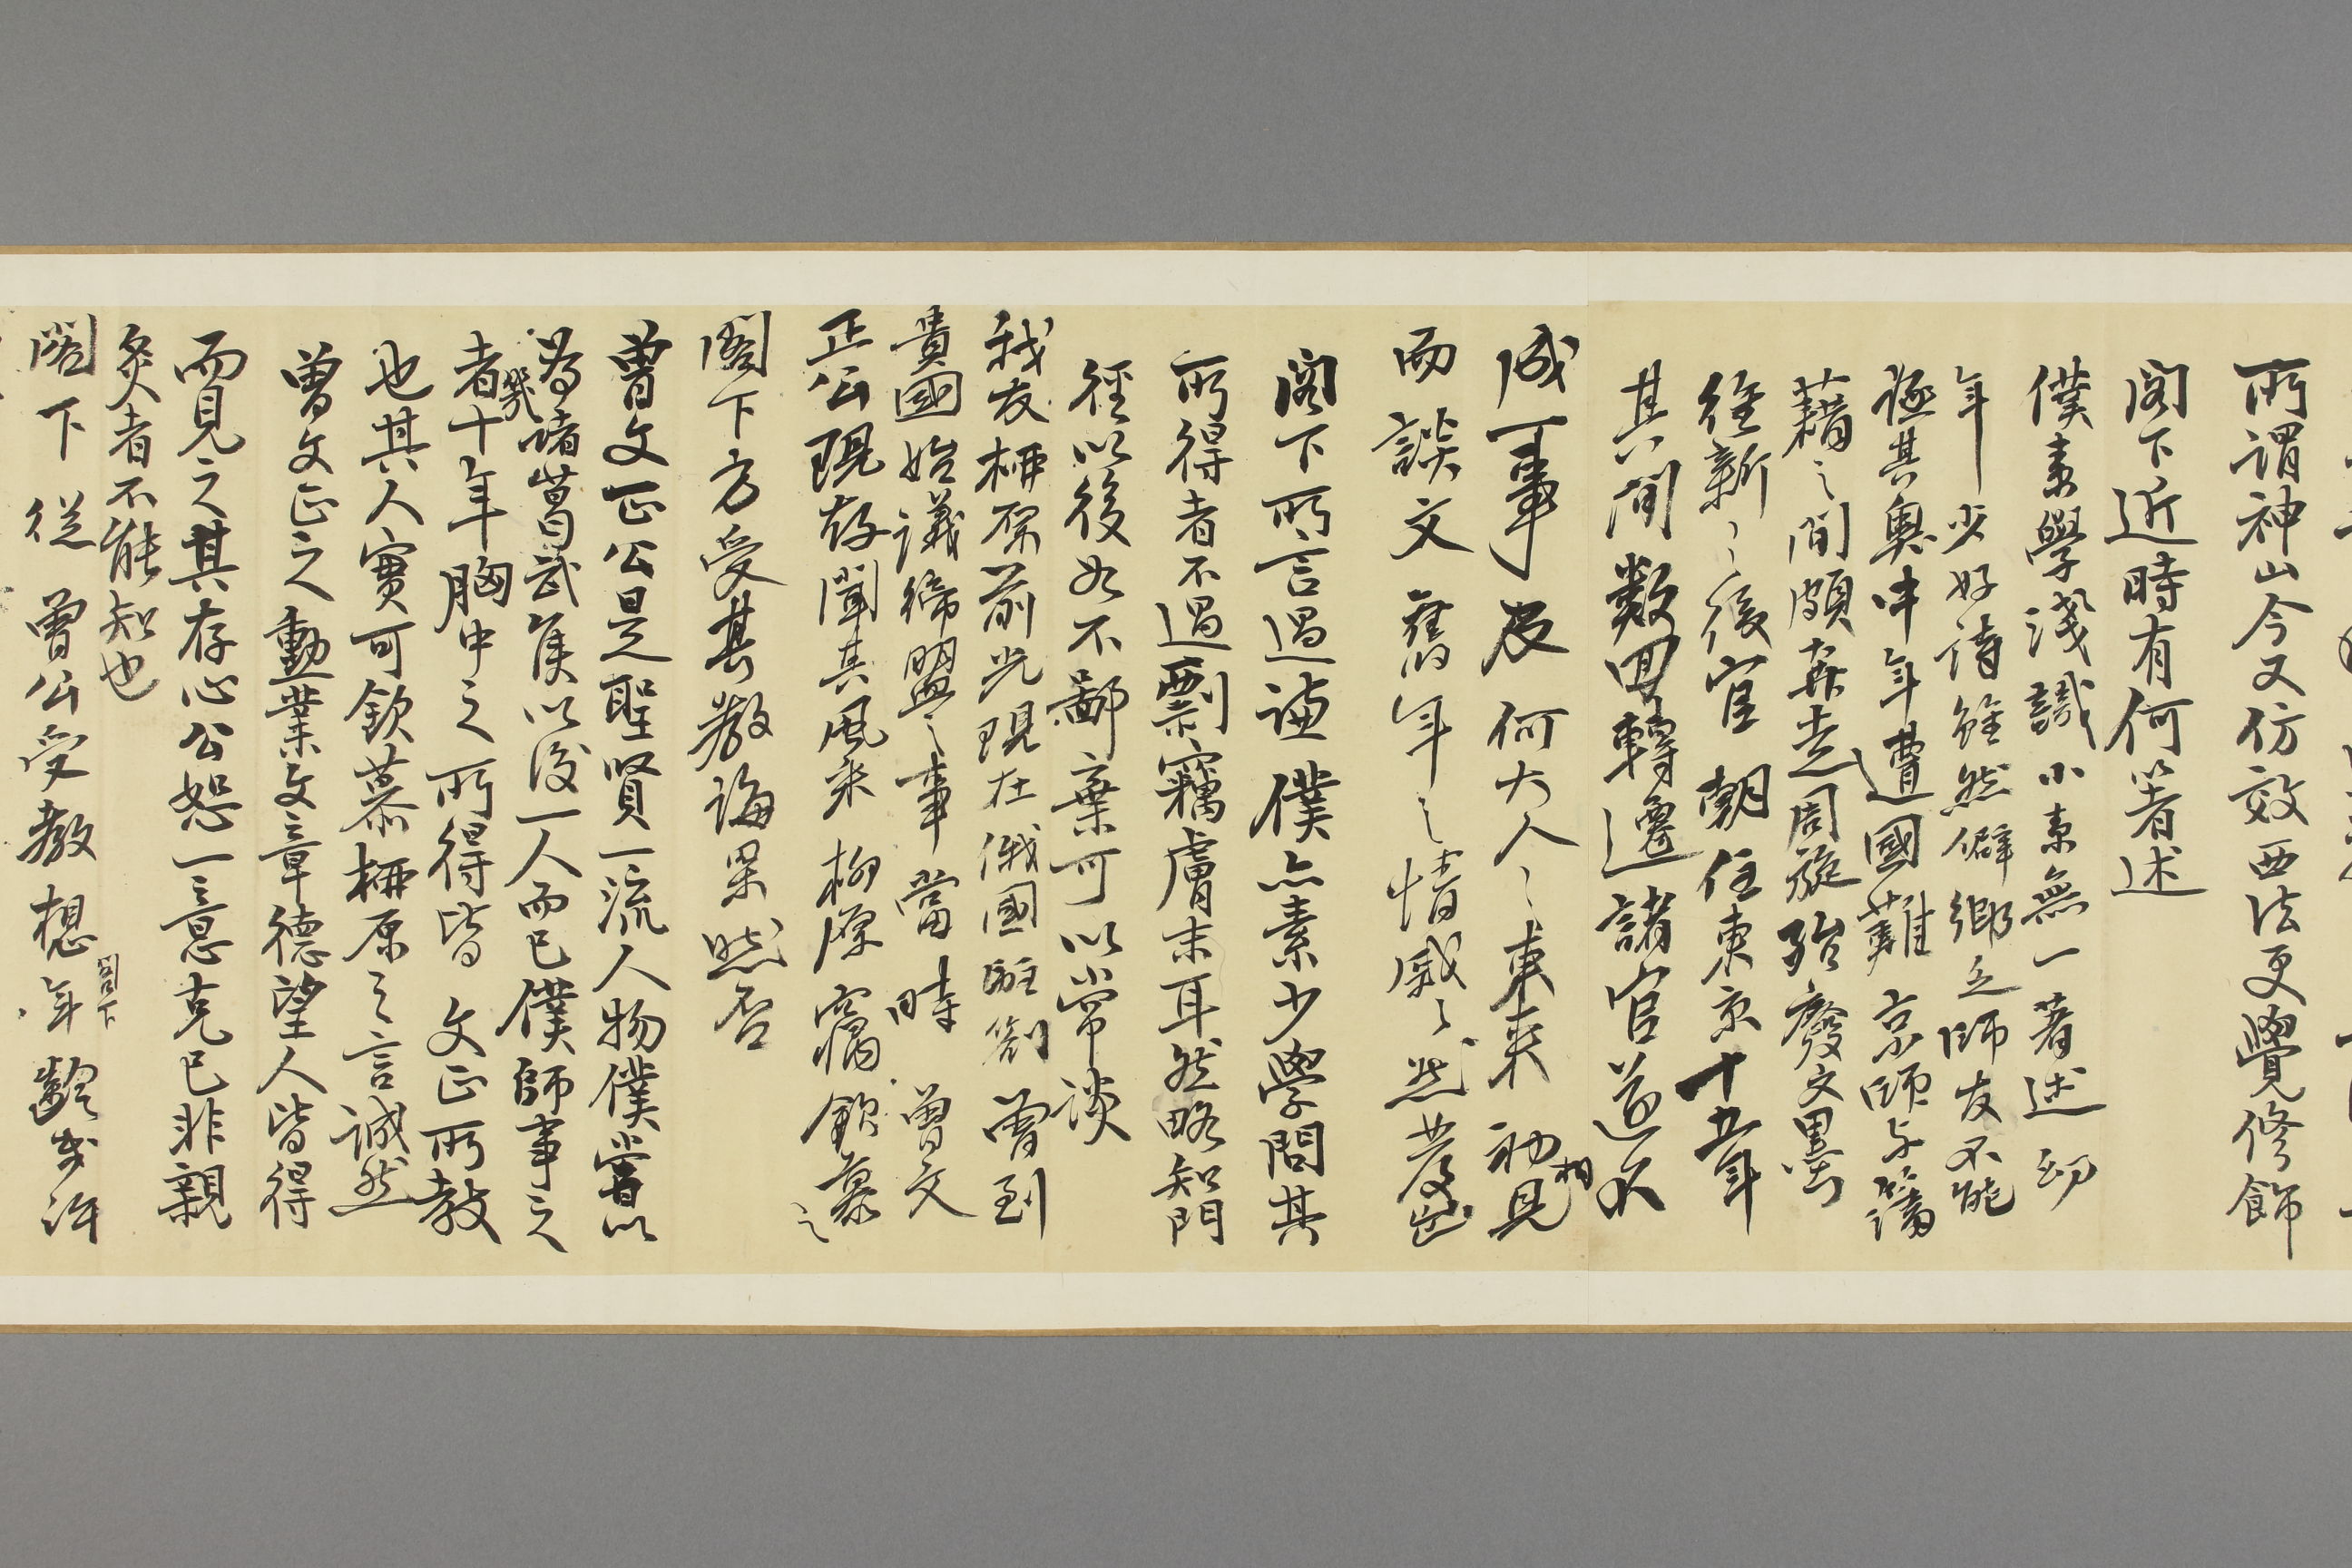 所謂神山今又仿效西法更覺修飾
閣下近時有何著述
僕素學淺識小素無一著述幼
年少好詩雖然僻鄉乏師友不能
極其奧中年遭國難京師与藩
藩之間頗奔走周旋殆廢文墨
維新〻後官朝住東京十五年
其間數回轉遷諸官遂不
成一事及何大人〻東來初相見
而談文舊年〻情感〻然發出
閣下所言過謙僕亦素少學問其
所得者不過剽竊膚末耳然略知門
徑以後如不鄙棄可以常談
我友柳原前光現在俄國駐劄曾到
貴國始議締盟〻事當時曾文
正公現存聞其風采柳原竊欽慕〻
閣下方受其教誨果然否
曾文正公是聖賢一流人物僕嘗以
為諸葛武侯以後一人而已僕師事之
者幾十年胸中之所得皆文正所教
也其人實可欽慕柳原之言誠然
曾文正之勳業文章德望人皆得
而見之其存心公恕一意克己非親
炙者不能知也
閣下從曾公受教想閣下年齡多許